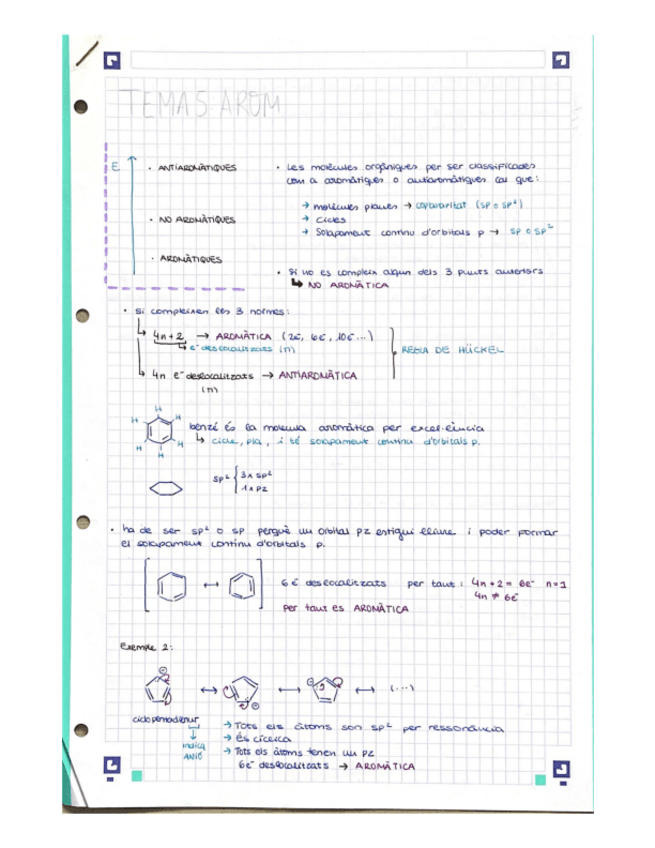 TEMA 5 AROM
E
· ANTIAROMÀTIQUES
· NO AROMÀTIQUES
· AROMÀTIQUES
· Les molècules orgàniques per ser classificades
com a aromàtiques o antiaromàtiques cal que:
→ molècules planes → coplanaritat (sp o sp²)
→ Cicles
→ Solapament continu d'orbitals p → sp o sp²
· Si no es compleix algun dels 3 punts anteriors
↳ NO AROMÀTICA
· si compleixen les 3 normes:
↳ 4n+2 → AROMÀTICA (2e⁻, 6e⁻, 10e⁻...)
↳ e⁻ deslocalitzats (π)
REGLA DE HÜCKEL
↳ 4n e⁻ deslocalitzats → ANTIAROMÀTICA
(π)
H H H H H H
benzè és la molècula aromàtica per excel·lència
↳ cicle, pla, i té solapament continu d'orbitals p.
sp² { 3 x sp²
1 x pz
· ha de ser sp² o sp perquè un orbital pz estigui lliure i poder formar
el solapament continu d'orbitals p.
6e⁻ deslocalitzats per tant: 4n+2 = 6e⁻ n=1
4n ≠ 6e⁻
per tant és AROMÀTICA
Exemple 2:
(...)
ciclopentadienur
↓
indica
ANIÓ
→ Tots els àtoms son sp² per ressonància
→ És cíclica
→ Tots els àtoms tenen un pz
6e⁻ deslocalitzats → AROMÀTICA